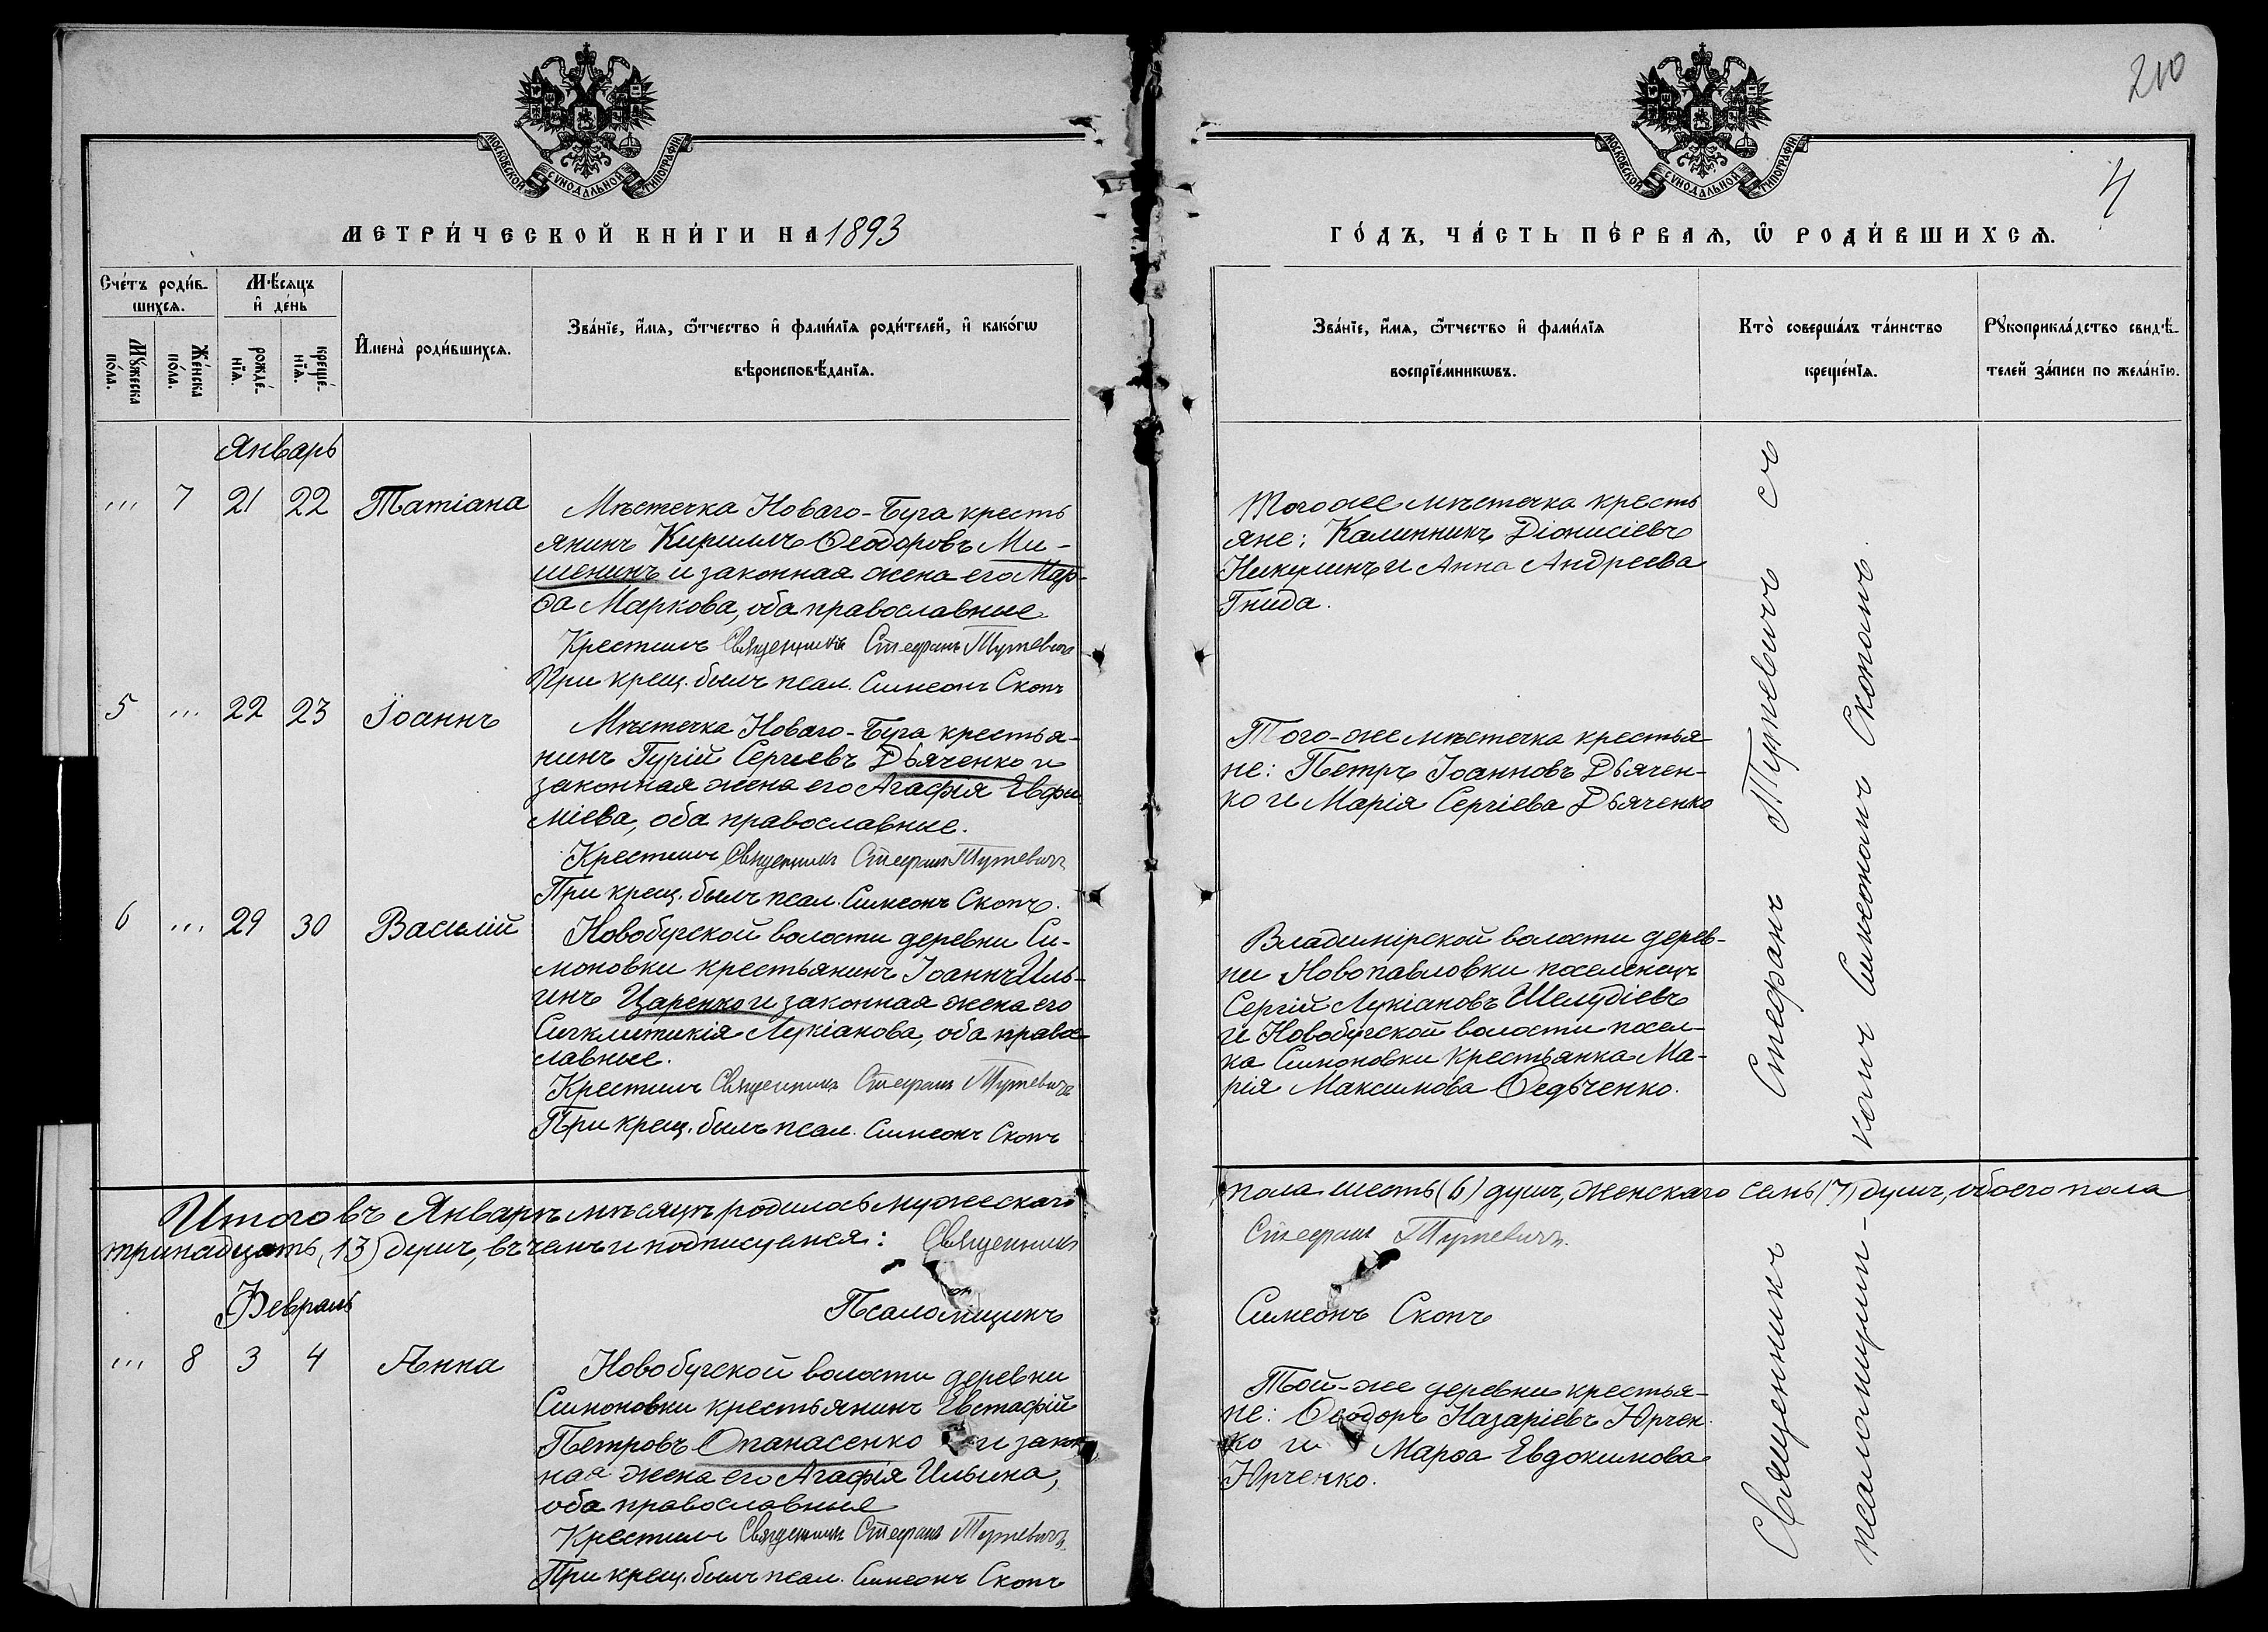 210
4
МОСКОВСКОЙ СѴНОДАЛЬНОЙ ТИПОГРАФІИ.
МОСКОВСКОЙ СѴНОДАЛЬНОЙ ТИПОГРАФІИ.
МЕТРИ́ЧЕСКОЙ КНИ́ГИ НА 1893
ГО́ДЪ, ЧА́СТЬ ПЕ́РВАѦ, Ѡ РОДИ́ВШИХСѦ.
Сче́тъ роди́в-
шихсѧ.
Мѣ́сѧцъ
и҆ де́нь
Мꙋ́жеска
по́ла.
Же́нска
по́ла.
рожде́-
нїѧ.
креще́-
нїѧ.
И҆мена̀ роди́вшихсѧ.
Зва́нїе, и҆́мѧ, ѻ҆́тчество и҆ фами́лїѧ роди́телей, и҆ како́гѡ
вѣроисповѣ́данїѧ.
Зва́нїе, и҆́мѧ, ѻ҆́тчество и҆ фами́лїѧ
воспрїе́мникѡвъ.
Кто̀ соверша́лъ та́инство
креще́нїѧ.
Рꙋкоприкла́дство свидѣ́-
телей за́писи по жела́нїю.
Январь
... 7 21 22 Татіана
Мѣстечка Новаго-Буга кресть
янинъ Кириллъ Ѳеодоровъ Ми-
шенинъ и законная жена его Мар-
ѳа Маркова, оба православные
Крестилъ Священникъ Стефанъ Туткевичъ
При крещ. былъ псал. Симеонъ Скопъ
Тогоже мѣстечка кресть
яне: Калинникъ Діонисіевъ
Никулинъ и Анна Андреева
Гнида.
5 ... 22 23 Іоаннъ
Мѣстечка Новаго-Буга крестья-
нинъ Гурій Сергіевъ Дьяченко и
законная жена его Агафія Евфи
міева, оба православные.
Крестилъ Священникъ Стефанъ Туткевичъ
При крещ. былъ псал. Симеонъ Скопъ.
Того-же мѣстечка крестья
не: Петръ Іоанновъ Дьячен-
ко и Марія Сергіева Дьяченко
6 ... 29 30 Василій
Новобугской волости деревни Си-
моновки крестьянинъ Іоаннъ Иль-
инъ Царенко и законная жена его
Сигклитикія Лукіанова, оба право
славные.
Крестилъ Священникъ Стефанъ Туткевичъ
При крещ. былъ псал. Симеонъ Скопъ
Владимірской волости дерев-
ни Новопавловки поселенецъ
Сергій Лукіановъ Шелудіевъ
и Новобугской волости посел-
ка Симоновки крестьянка Ма-
рія Максимова Ѳедьченко.
Итого въ Январѣ мѣсяцѣ родилось мужескаго
пола шесть (6) душъ, женскаго семь (7) душъ, обоего пола
тринадцать (13) душъ, въ чемъ и подписуемся: Священникъ
Стефанъ Туткевичъ.
Псаломщикъ
Симеонъ Скопъ
Февраль
... 8 3 4 Анна
Новобугской волости деревни
Симоновки крестьянинъ Евстафій
Петровъ Опанасенко и закон
ная жена его Агафія Ильина,
оба православные
Крестилъ Священникъ Стефанъ Туткевичъ
При крещ. былъ псал. Симеонъ Скопъ
Той-же деревни крестья-
не: Ѳеодоръ Назаріевъ Юрчен-
ко и Марѳа Евдокимова
Юрченко.
Священникъ Стефанъ Туткевичъ съ
псаломщи-комъ Симеономъ Скопомъ.